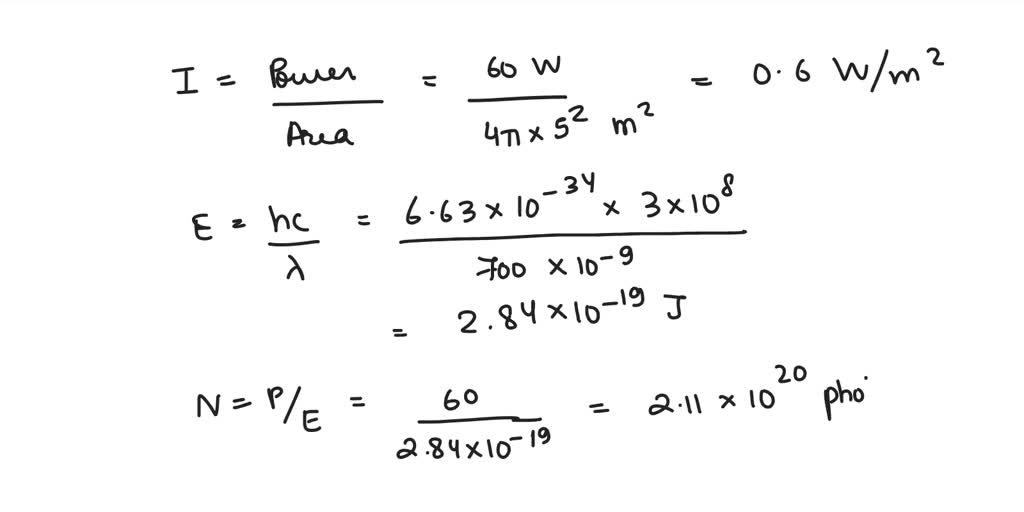 I = Power / Area = 60 W / 4π × 5² m² = 0.6 W/m²
E = hc / λ = 6.63 × 10⁻³⁴ × 3 × 10⁸ / 700 × 10⁻⁹
= 2.84 × 10⁻¹⁹ J
N = P/E = 60 / 2.84 × 10⁻¹⁹ = 2.11 × 10²⁰ pho